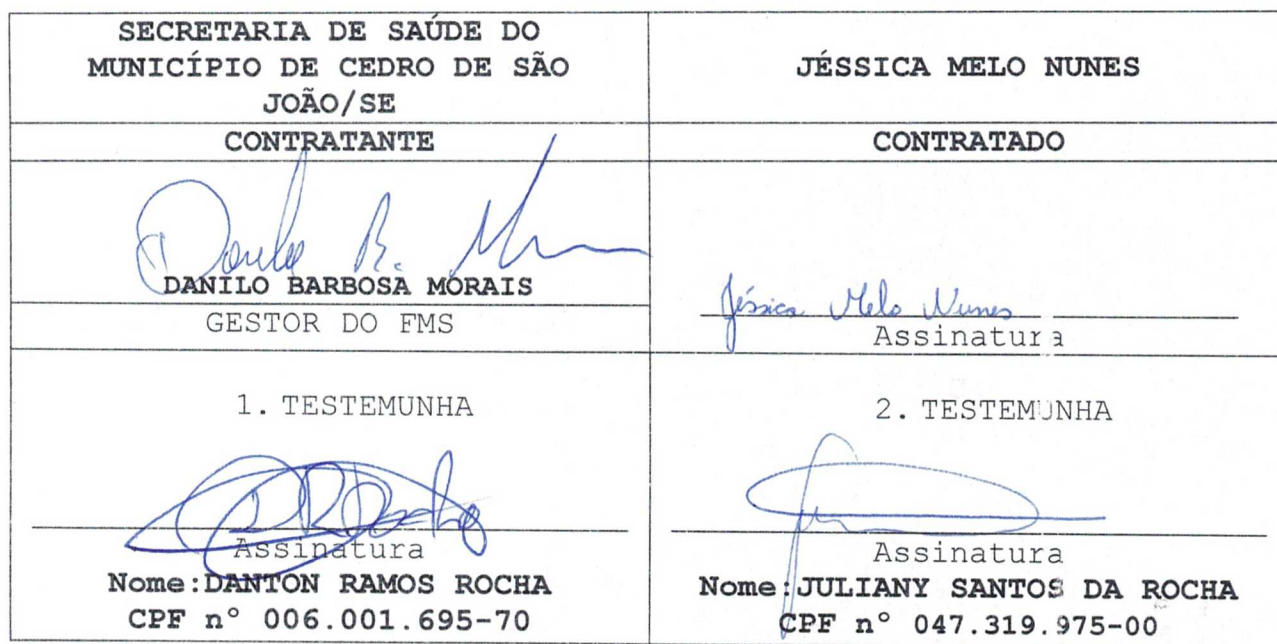 SECRETARIA DE SAÚDE DO
MUNICÍPIO DE CEDRO DE SÃO
JOÃO/SE
JÉSSICA MELO NUNES
CONTRATANTE
CONTRATADO
Danilo B. M
DANILO BARBOSA MORAIS
GESTOR DO FMS
Jéssica Melo Nunes
Assinatura
1. TESTEMUNHA
2. TESTEMUNHA
Assinatura
Nome:DANTON RAMOS ROCHA
CPF n° 006.001.695-70
Assinatura
Nome:JULIANY SANTOS DA ROCHA
CPF n° 047.319.975-00